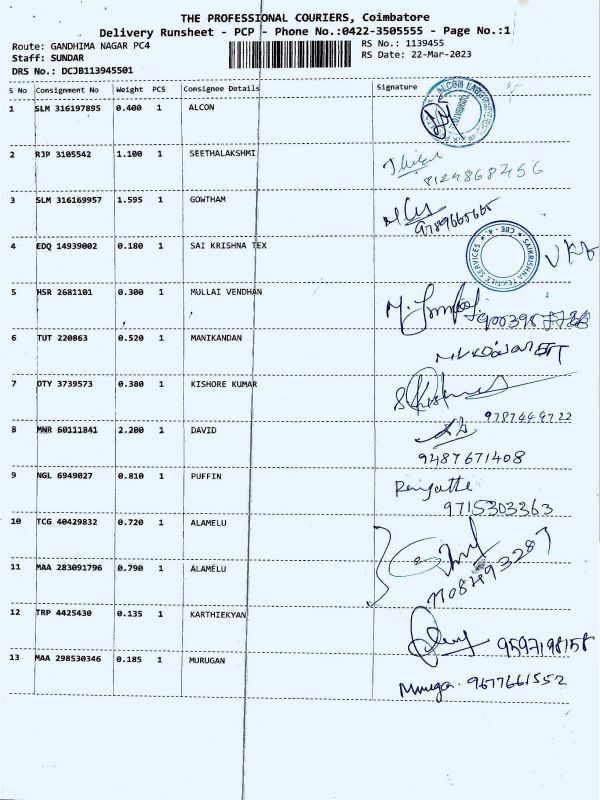 THE PROFESSIONAL COURIERS, Coimbatore
Delivery Runsheet - PCP - Phone No.:0422-3505555 - Page No.:1
Route: GANDHIMA NAGAR PC4
RS No.: 1139455
Staff: SUNDAR
RS Date: 22-Mar-2023
DRS No.: DCJB113945501
S No Consignment No Weight PCS Consignee Details Signature
1 SLM 316197895 0.400 1 ALCON
2 RJP 3105542 1.100 1 SEETHALAKSHMI
8124868456
3 SLM 316169957 1.595 1 GOWTHAM
9789665665
4 EDQ 14939002 0.180 1 SAI KRISHNA TEX
SAIKRISHNA TEXTILE SERVICES CBE - 4.
5 HSR 2681101 0.300 1 MULLAI VENDHAN
6 TUT 220863 0.520 1 MANIKANDAN
7 DTY 3739573 0.380 1 KISHORE KUMAR
9787449722
8 MNR 60111841 2.200 1 DAVID
9487671408
9 NGL 6949027 0.810 1 PUFFIN
9715303363
10 TCG 40429832 0.720 1 ALAMELU
11 MAA 283091796 0.790 1 ALAMELU
7708493287
12 TRP 4425430 0.135 1 KARTHIEKYAN
9597198158
13 MAA 298530346 0.185 1 MURUGAN
Muruga. 9677661552